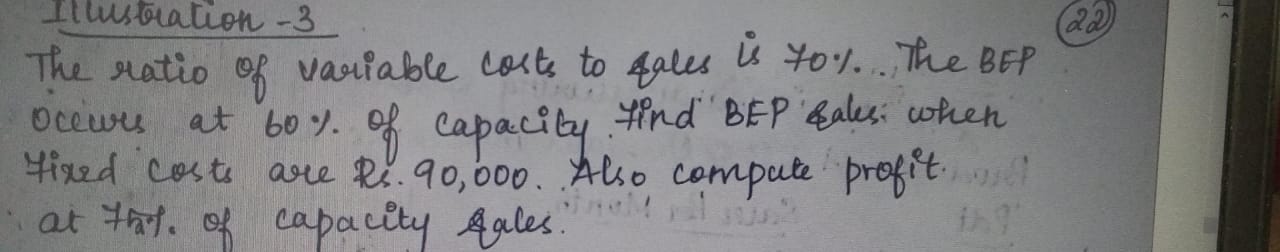 Illustration -3
22
The ratio of variable costs to sales is 70%. The BEP
occurs at 60% of capacity. find BEP sales. when
fixed costs are Rs. 90,000. Also compute profit.
at 75%. of capacity sales.